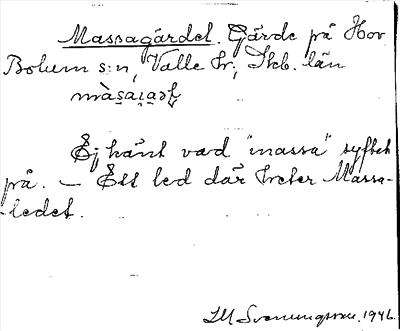 Massagärdet. Gärde på Hov
Bolum s:n, Valle hr; Skb. län
Ej känt vad "massa" syftet
på. – Ett led där heter Massa-
-ledet.
Svenungsson. 1946.